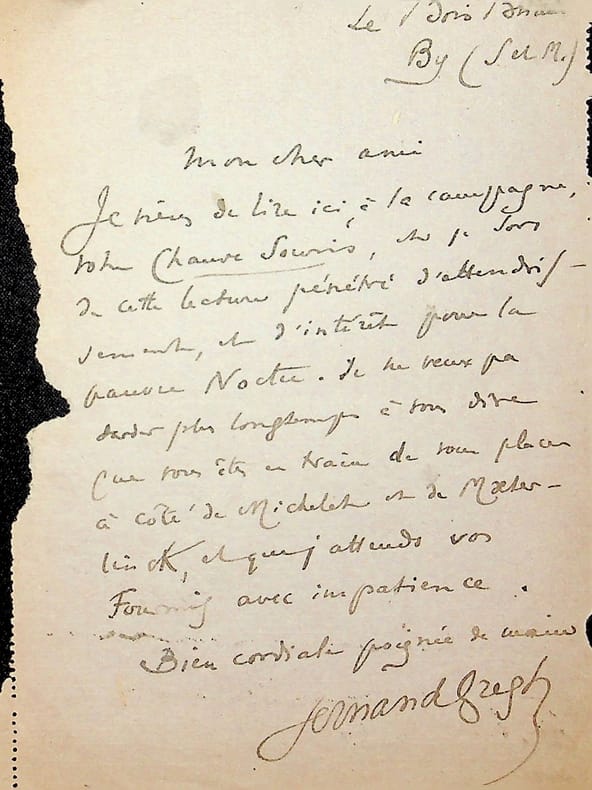 Le Bois
By (S et M.)
Mon cher ami
Je viens de lire ici, à la campagne,
votre Chauve Souris, et je sors
de cette lecture pénétré d'attendris-
sement, et d'intérêt pour la
pauvre Noctu. Je ne veux pas
tarder plus longtemps à vous dire
que vous êtes en train de vous placer
à côté de Michelet et de Mæter-
linck, et que j'attends vos
Fourmis avec impatience.
Bien cordiale poignée de main
Fernand Gregh